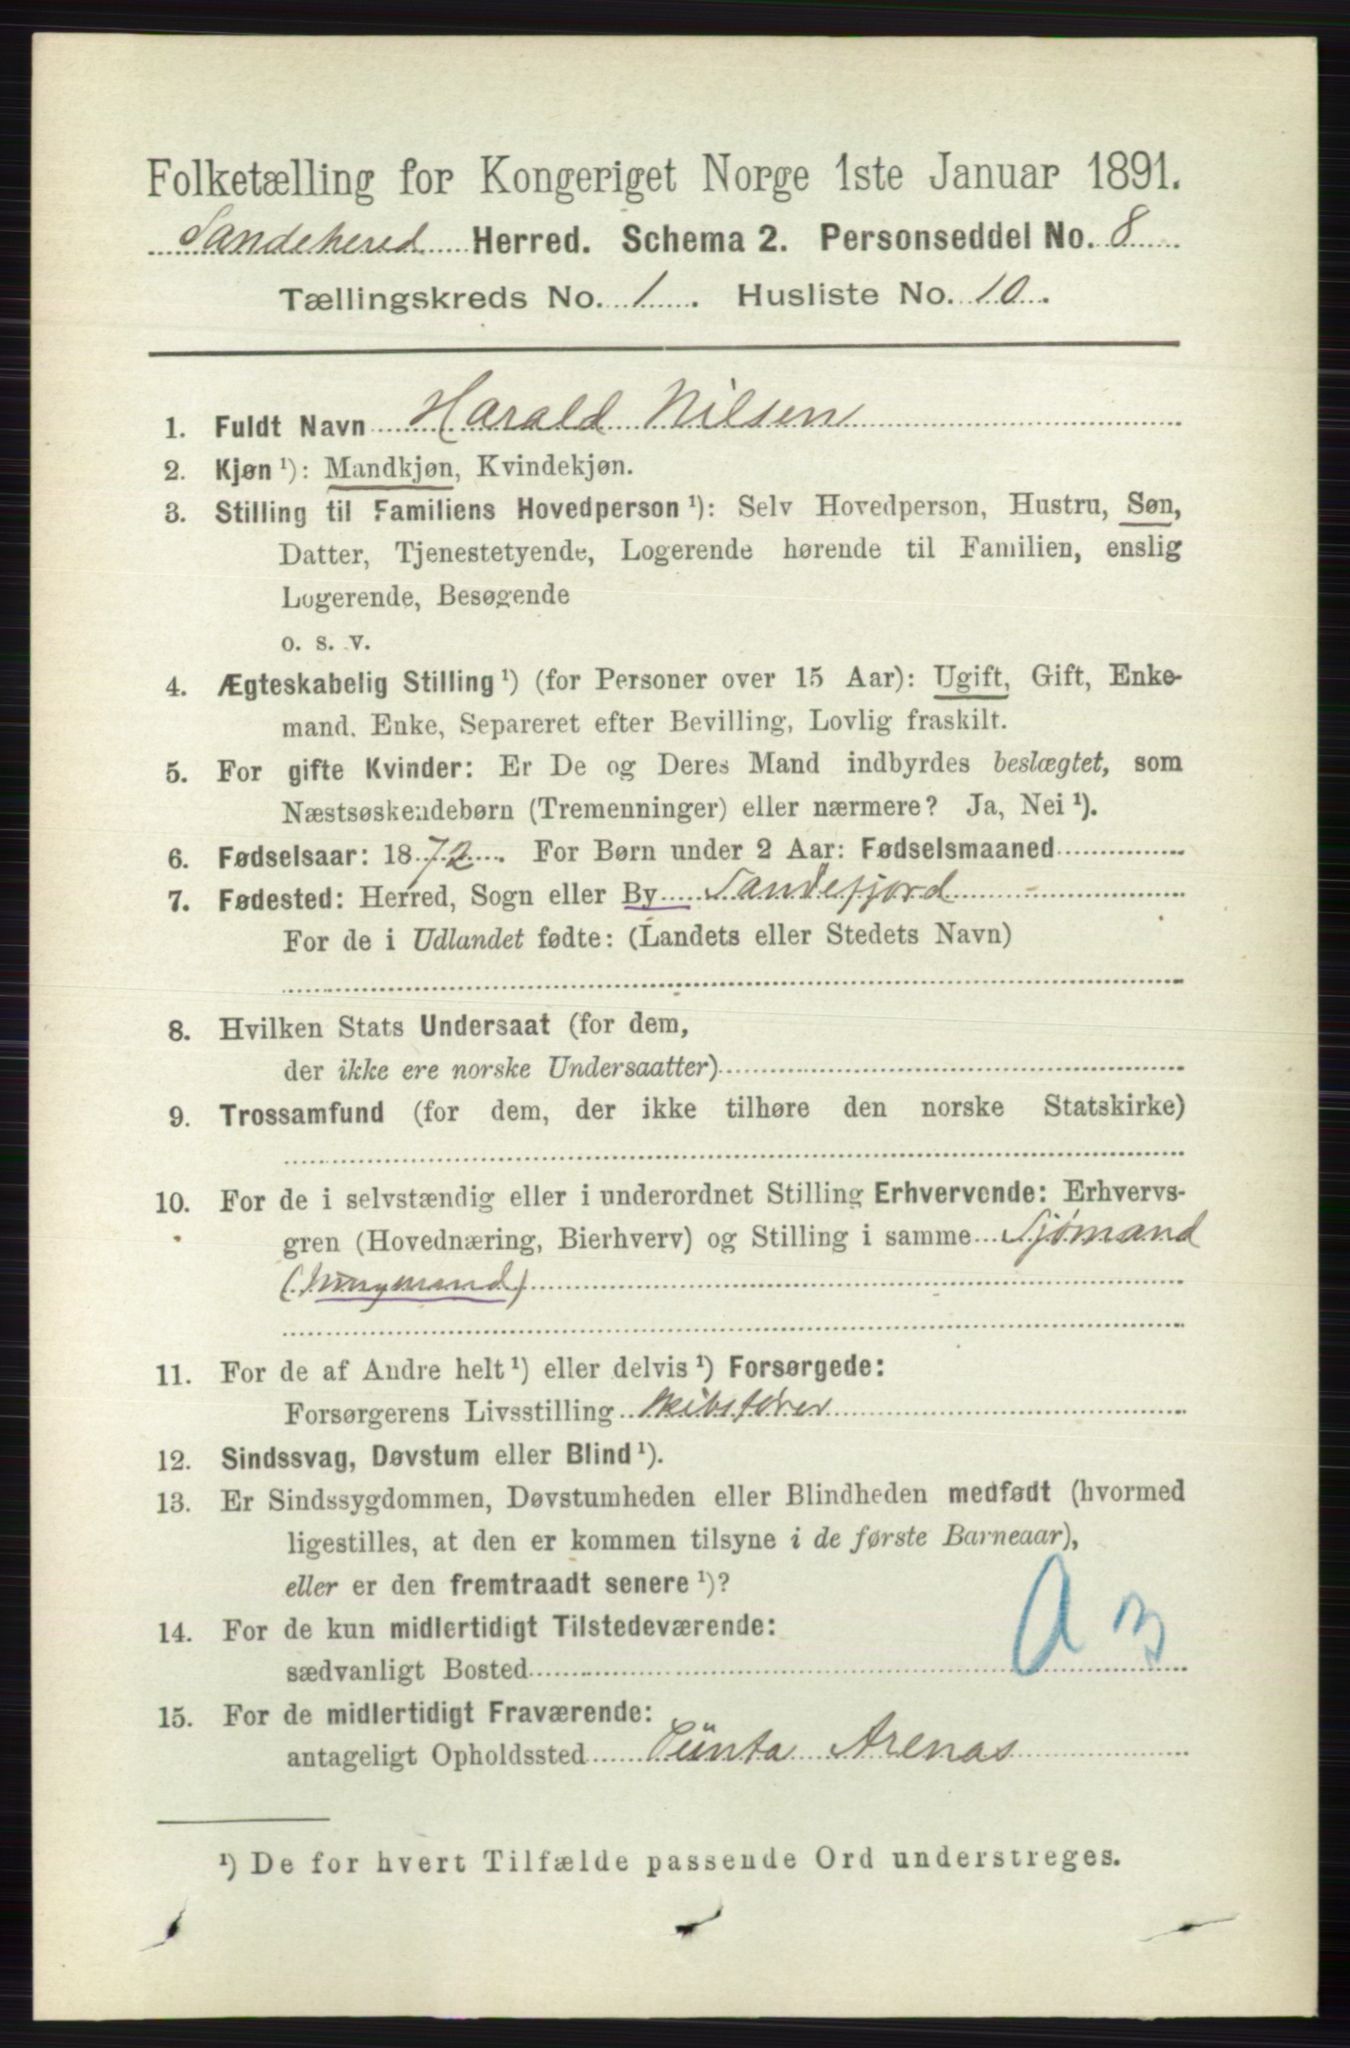 Folketælling for Kongeriget Norge 1ste Januar 1891.
Sandeherred Herred. Schema 2. Personseddel No. 8
Tællingskreds No. 1. Husliste No. 10.
1. Fuldt Navn Harald Nilsen
2. Kjøn ¹): Mandkjøn, Kvindekjøn.
3. Stilling til Familiens Hovedperson ¹): Selv Hovedperson, Hustru, Søn,
Datter, Tjenestetyende, Logerende hørende til Familien, enslig
Logerende, Besøgende
o. s. v.
4. Ægteskabelig Stilling ¹) (for Personer over 15 Aar): Ugift, Gift, Enke-
mand. Enke, Separeret efter Bevilling, Lovlig fraskilt.
5. For gifte Kvinder: Er De og Deres Mand indbyrdes beslægtet, som
Næstsøskendebørn (Tremenninger) eller nærmere? Ja, Nei ¹).
6. Fødselsaar: 1872. For Børn under 2 Aar: Fødselsmaaned
7. Fødested: Herred, Sogn eller By Sandefjord
For de i Udlandet fødte: (Landets eller Stedets Navn)
8. Hvilken Stats Undersaat (for dem,
der ikke ere norske Undersaatter)
9. Trossamfund (for dem, der ikke tilhøre den norske Statskirke)
10. For de i selvstændig eller i underordnet Stilling Erhvervende: Erhvervs-
gren (Hovednæring, Bierhverv) og Stilling i samme Sjømand
(Jungmand)
11. For de af Andre helt ¹) eller delvis ¹) Forsørgede:
Forsørgerens Livsstilling Skibsfører
12. Sindssvag, Døvstum eller Blind ¹).
13. Er Sindssygdommen, Døvstumheden eller Blindheden medfødt (hvormed
ligestilles, at den er kommen tilsyne i de første Barneaar),
eller er den fremtraadt senere ¹)?
14. For de kun midlertidigt Tilstedeværende:
sædvanligt Bosted
a 3
15. For de midlertidigt Fraværende:
antageligt Opholdssted Pünta Arenas
¹) De for hvert Tilfælde passende Ord understreges.